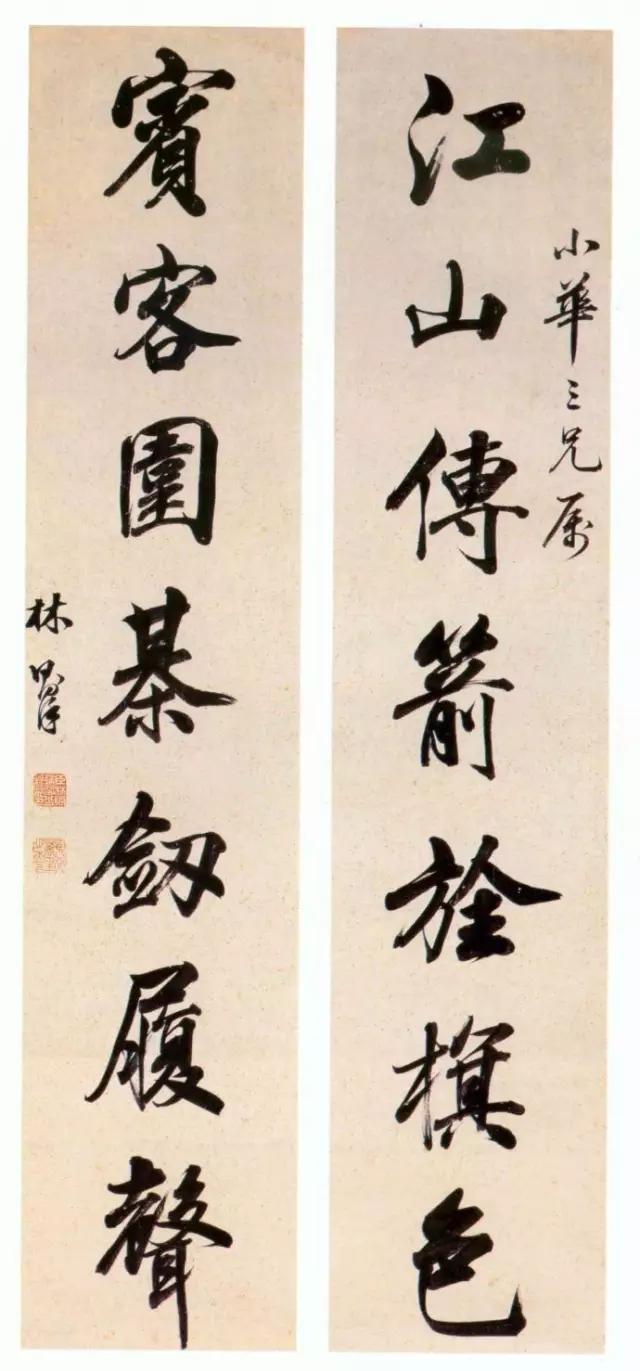 小華三兄属
江山傳箭旌旗色
賓客圍棊劒履聲
林則徐